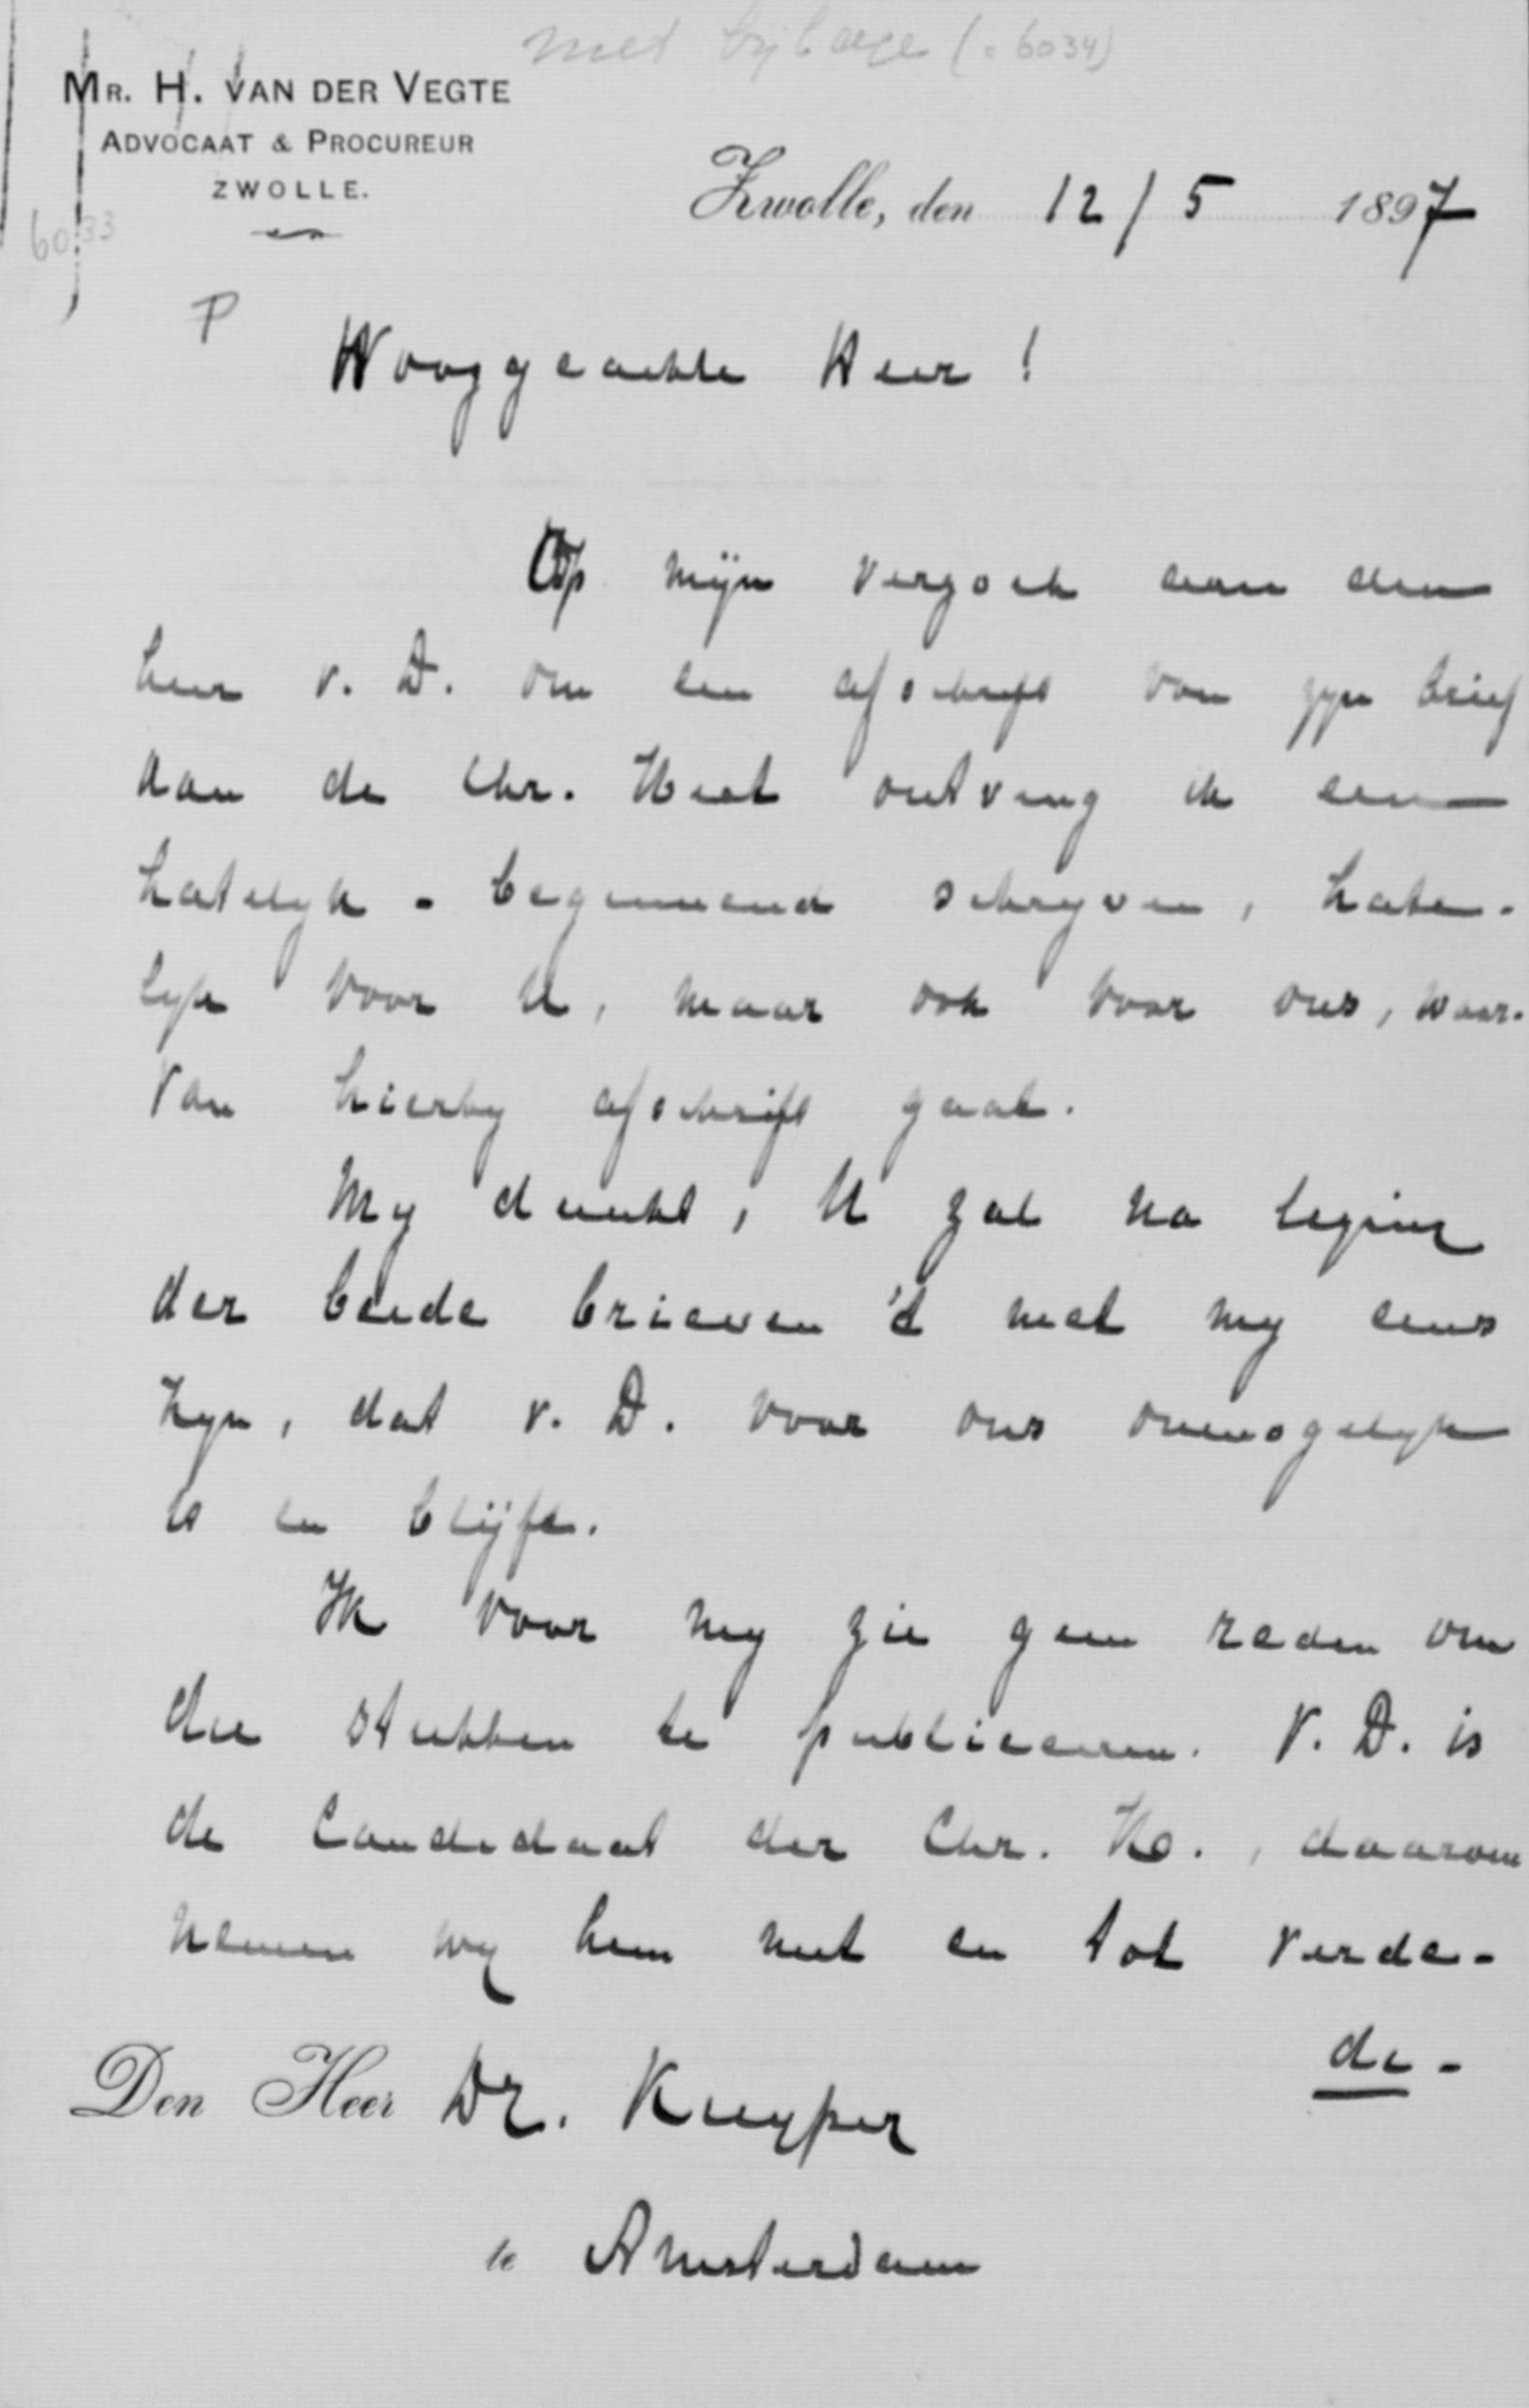 met bijlage (= 6034)
MR. H. VAN DER VEGTE
ADVOCAAT & PROCUREUR
ZWOLLE.
Zwolle, den 12/5 1897
6033
P
Hooggeachte Heer!
Op mijn verzoek aan den
heer v. D. om een afschrift van zyn brief
aan de Chr. Hist ontving ik een
hatelyk - beginnend schryven, hate-
lyk voor U, maar ook voor ons, waar-
van hierby afschrift gaat.
My dunkt, U zal na lezing
der beide brieven 't met my eens
zyn, dat v. D. voor ons onmogelyk
is en blijft.
Ik voor my zie geen reden om
die stukken te publiceeren. V. D. is
de Candidaat der Chr. H., daarom
nemen wy hem niet en tot verde-
de-
Den Heer Dr. Kuyper
te Amsterdam